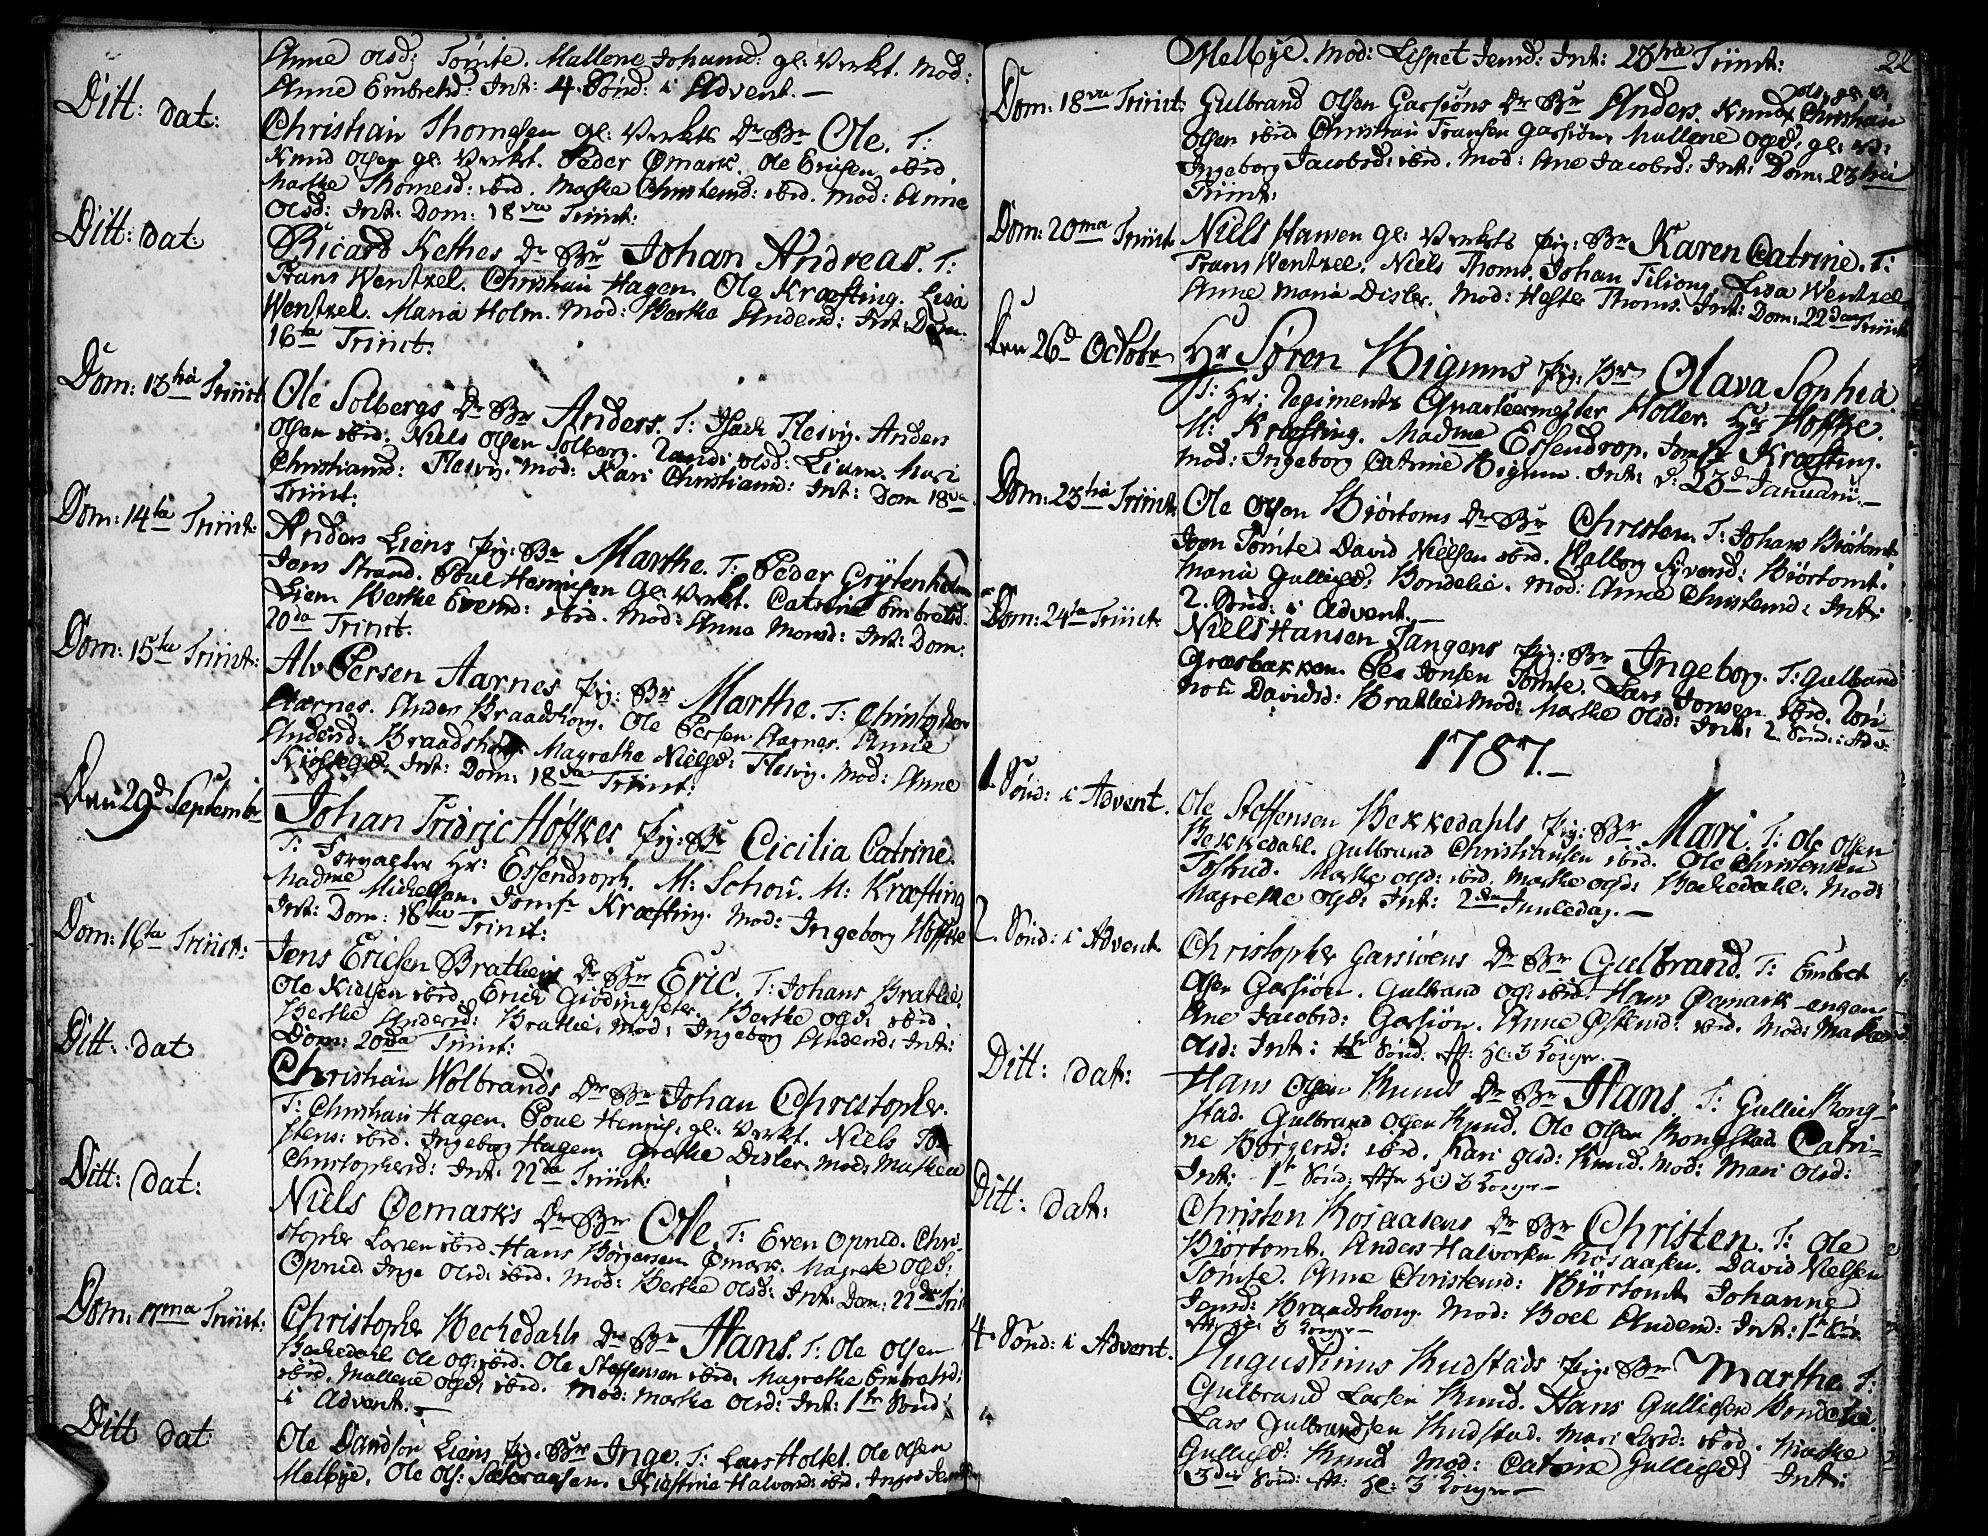 Anne Olsd: Tømte. Mallene Johansd: gl: Verket. Mod:
Anne Embretsd: Int: 4. Sønd: i Advent.—
Ditt: dat:
Christian Thomesen gl: Verkets Dr Br Ole. T:
Knud Olsen gl: Verket. Peder Ømark. Ole Ericksen ibid.
Marthe Thomesd: ibid. Marthe Christensd: ibid. Mod: Anne
Olsd: Int: Dom: 18va Trinit:
Ditt: dat:
Ricard Kethes Dr Br Johan Andreas. T:
Frans Wentzel. Christian Hagen. Ole Kræfting. Lisa
Wentzel. Maria Holm. Mod: Berthe Andersd: Int: Dom:
16ta Trinit:
Dom: 13tia Trinit:
Ole Solbergs Dr Br Anders. T: Isach Flesvig. Anders
Olsen ibid. Niels Olsen Solberg. Randi Olsd: Lium. Mari
Christiansd: Flesvig. Mod: Kari Christiansd: Int: Dom 18va
Trinit:
Dom: 14ta Trinit:
Anders Liens pig: Br Marthe. T: Peder Grytenholm
Jens Strand. Poul Henrichsen gl: Verket. Catrine Embretsd:
Lien. Berthe Evensd: ibid. Mod: Anne Monsd: Int: Dom:
20da Trinit:
Dom: 15ta Trinit:
Alv Persen Aarnes pig: Br Marthe. T: Christopher
Aarnes. Anders Braadshoug. Ole Persen Aarnes. Anne
Andersd: Braadshoug. Magrethe Nielsd: Flesvig. Mod: Anne
Int: Dom: 18va Trinit:
Den 29d Septembr
Johan Fridric Høffkes pig: Br Cicilia Catrine.
T: Forvalter Hr: Essendroph. M: Schou. M: Kræfting
Madme Michelsen. Jomfr Kræfting. Mod: Ingeborg Høffke
Int: Dom: 18va Trinit:
Dom: 16ta Trinit:
Jens Ericsen Bratliens Dr Br Eric. T: Johans Bratlie.
Ole Nielsen ibid. Erich Giødingsæter. Berthe Olsd: ibid
Berthe Andersd: Bratlie. Mod: Ingeborg Andersd: Int:
Dom: 20da Trinit:
Ditt: dat
Christian Wolbrands Dr Br Johan Christopher.
T: Christian Hagen. Poul Henrich: gl: Verket. Niels
Stens: ibid. Ingeborg Hagen. Grethe Disler. Mod: Mathea
Christophersd: Int: 22da Trinit:
Ditt: dat:
Niels Oemarks Dr Br Ole. T: Even Opnid. Chri-
stopher Larsen ibid. Hans Børgersen Ømark. Magrete Olsd:
Opnid. Inge Olsd: ibid. Mod: Berthe Olsd: Int: Dom: 22da Trin:
Dom: 17ma Trinit:
Christopher Bechedahls Dr Br Hans. T: Ole Olsen
Bechedahl. Ole Ols: ibid. Ole Steffensen ibid. Magrethe Embretsd:
ibid. Mallene Olsd: ibid. Mod: Marthe Olsd: Int: 1te Sønd:
i Advent.—
Ditt dat
Ole Davidsen Liens pig: Br Inge. T: Lars Holtet. Ole Olsen
Melbye. Ole Ols: Kirstine Halvorsd: ibid. Inger Jensd:
22
Melbye. Mod: Lispet Jensd: Int: 23tia Trinit:
Dom: 18va Trinit:
Gulbrand Olsen Garsiøns Dr Br Anders. Knud Ols: gl: V: Christian
Olsen ibid. Christian Fransen Garsiøn. Mallene Olsd: gl: V:
Ingeborg Jacobsd: ibid. Mod: Ane Jacobsd: Int: Dom: 23tia
Trinit:
Dom: 20ma Trinit:
Niels Hansen gl: Verkets pig: Br Karen Catrine. T:
Frans Wentzel. Niels Thoms. Johan Tiliong. Lisa Wentzel.
Anne Maria Disler. Mod: Hester Thoms. Int: Dom: 22da Trinit:
Den 26d Octobr
Hr Søren Bigums pig: Br Olava Sophia.
T: Hr: Regiments Quarteermester Holler. Hr Høffke.
M: Kræfting. Madme Essendrop. Jomfr Kræfting.
Mod: Ingeborg Catrine Bigum. Int: d: 23d Januarii.—
Dom: 23tia Trinit:
Ole Olsen Biørtoms Dr Br Christen. T: Johans Biørtomt
Joen Tømte. David Nielsen ibid. Walborg Syversd: Biørtomt.
Maria Gullichsd: Bondelie. Mod: Anne Christensd: Int:
2. Sønd: i Advent.—
Dom: 24ta Trinit:
Niels Hansen Tangens pig: Br Ingeborg. T: Gulbrand
Græsbakken. Peer Jonsen Tømte. Lars Jonsen ibid. Røn-
nou Davidsd: Bratlie. Mod: Marthe Olsd: Int: 2. Sønd: i Adv:
1787.—
1. Sønd: i Advent.
Ole Steffensen Bekkedahls pig: Br Mari. T: Ole Olsen
Bekkedahl. Gulbrand Christiansen ibid. Ole Christensen
Tostrud. Marthe Olsd: ibid. Marthe Olsd: Bechedahl. Mod:
Magrethe Olsd: Int: 2den Juuledag.—
2. Sønd: i Advent.
Christopher Garsiøens Dr Br Gulbrand. T: Embret
Olsen Garsiøn. Gulbrand Ols: ibid. Hans Oemark-angen
Ane Jacobsd: Garsiøn. Anne Østensd: ibid. Mod: Marthe
Olsd: Int: 1te Sønd: eft: He: 3 Konger.—
Ditt: dat:
Hans Olsen Knuds Dr Br Hans. T: Gullic Kong-
stad. Gulbrand Olsen Knud. Ole Olsen Kongstad. Catri-
ne Børgersd: ibid. Kari Olsd: Knud. Mod: Mari Olsd:
Int: 1te Sønd: efter He: 3 Konger—
Ditt: dat:
Christen Rosaasens Dr Br Christen. T: Ole
Biørtomt. Anders Halvorsen Rosaasen. David Nielsen
Tømte. Anne Christensd: Biørtomt. Johanne
Jensd: Braadshoug. Mod: Boel Andersd: Int: 1te Sønd:
efter He: 3 Konger—
4. Sønd: i Advent.
Augustinus Rudstads pig: Br Marthe. T:
Gulbrand Larsen Knud. Hans Gullichsen Bondelie.
Lars Gulbrandsen Rudstad. Mari Larsd: ibid. Marthe
Gullichsd: Knud Mod: Catrine Gullichsd: Int:
3die Sønd: eft: He: 3 Konger—